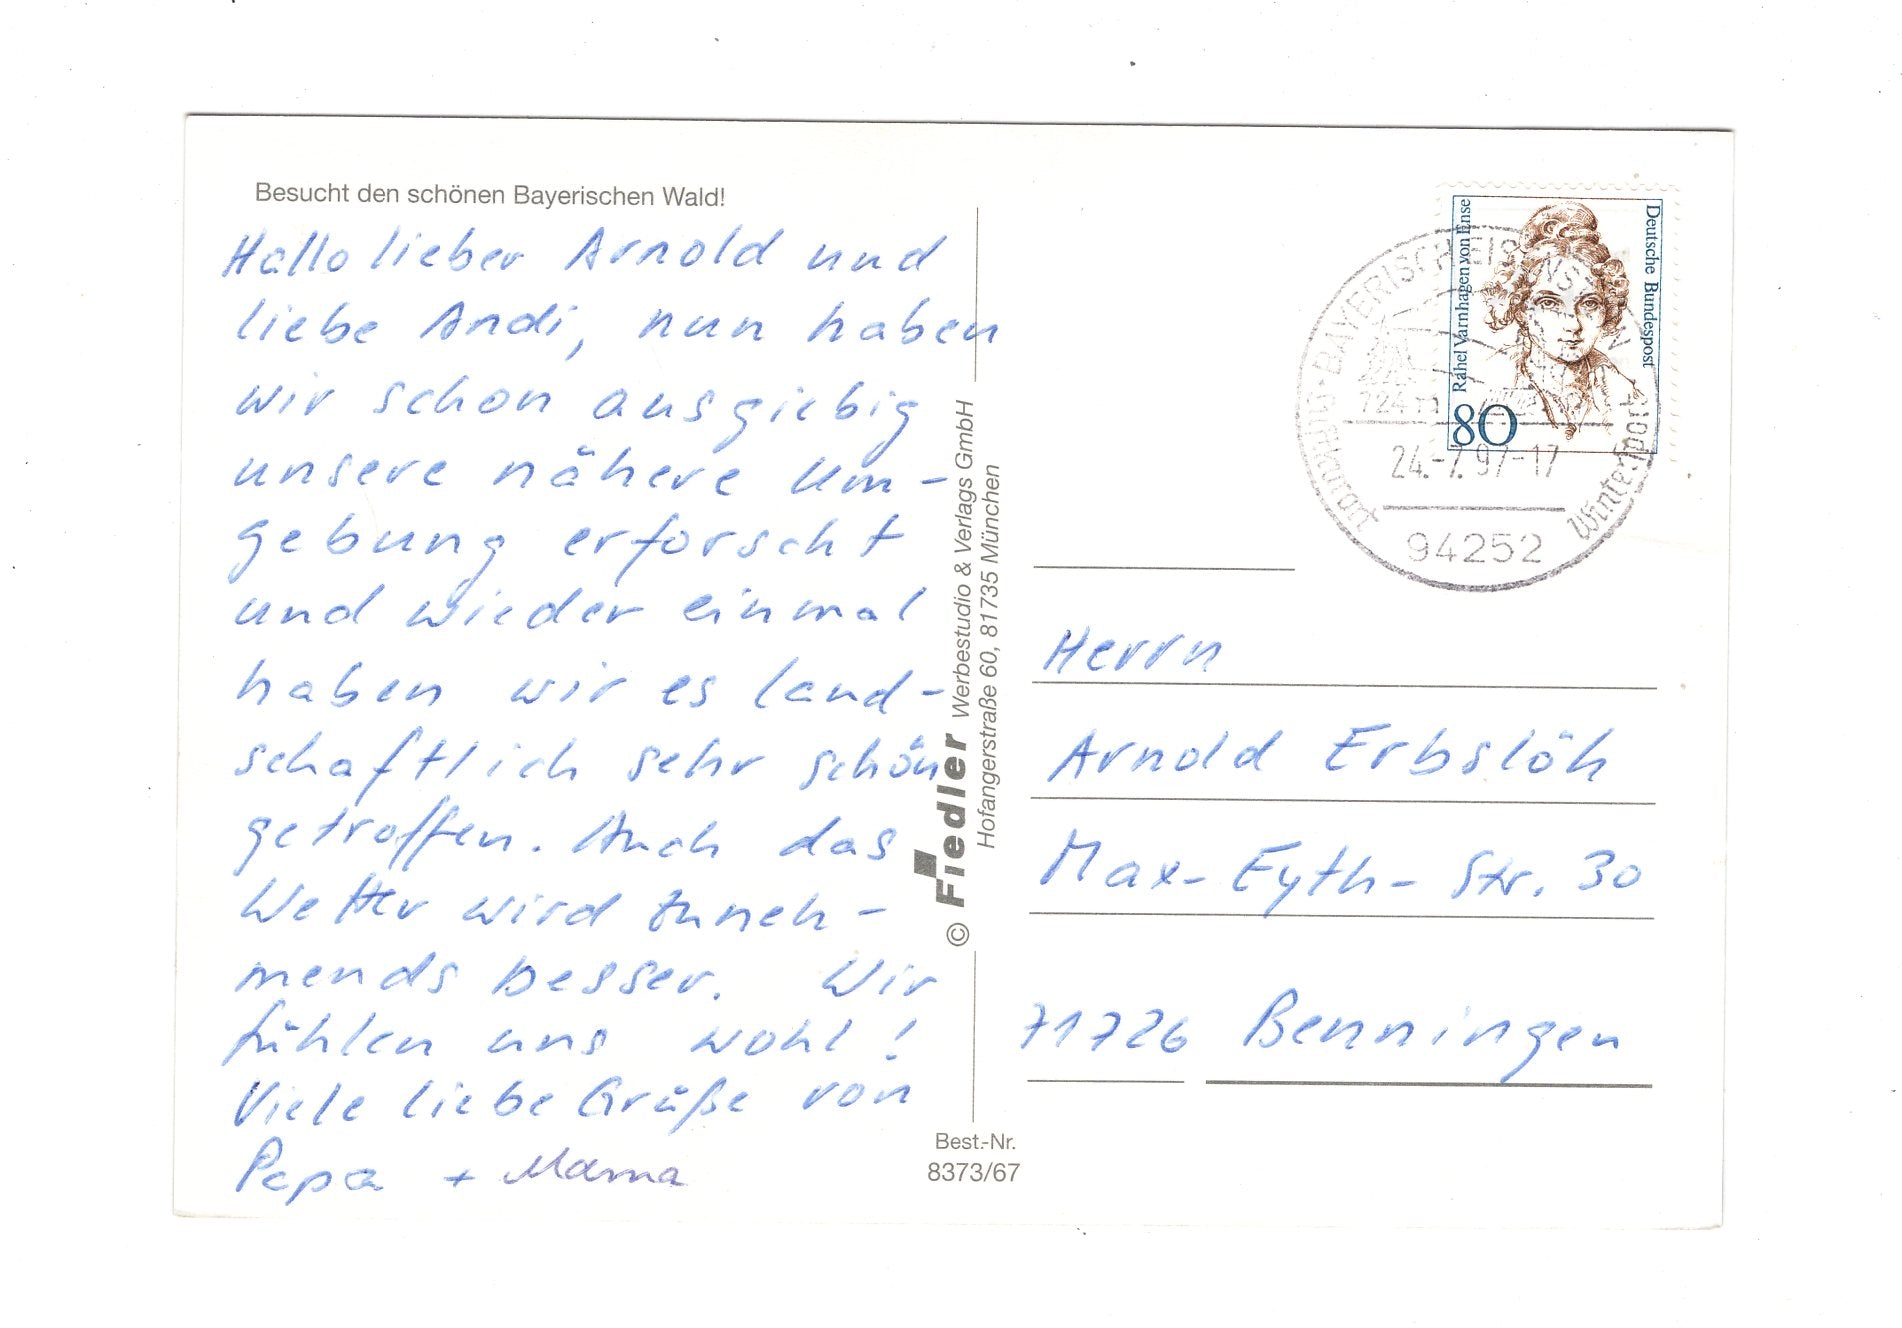 Besucht den schönen Bayerischen Wald!
Hallo lieber Arnold und
liebe Andi, nun haben
wir schon ausgiebig
unsere nähere Um-
gebung erforscht
und wieder einmal
haben wir es land-
schaftlich sehr schön
getroffen. Auch das
Wetter wird zuneh-
mends besser. Wir
fühlen uns wohl!
Viele liebe Grüße von
Papa + Mama
© Fiedler Werbestudio & Verlags GmbH
Hofangerstraße 60, 81735 München
Best.-Nr.
8373/67
Deutsche Bundespost
Rahel Varnhagen von Ense
80
BAYERISCH EISENSTEIN
724 m
24.-7.97-17
Wintersport
94252
Herrn
Arnold Erbslöh
Max-Eyth-Str. 30
71726 Benningen